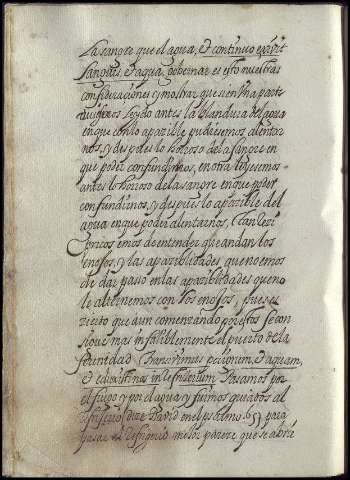 La sangre que el agua, Et continuo exivit
sanguis, Et aqua, gobernar es esto nuestras
consideraciones, y mostrar que si en Vna parte
antes la blandura del agua
en que con lo apazible pudiesemos alentar
nos, y despues lo horroroso de la sangre en
que poder confundirnos, en otra
antes lo horroroso de la sangre en que poder
confundirnos, y despues lo apazible del
agua en que poder alentarnos,
emos de entender que andan los
enojos, y las apazibilidades, que no emos
de dar paso en las apazibilidades que no
le alternemos con los enojos, pues es
zierto que aun comenzando por estos se con
sigue mas infaliblemente el puerto de la
santidad Transivimus per ignem, Et aquam,
Et eduxisti nos in refrigerium. Pasamos por
el fuego y por el agua y fuimos guiados al
refrigerio, dize David en el psalmo. 65, para
pasar al refrigerio mejor parece que se abri